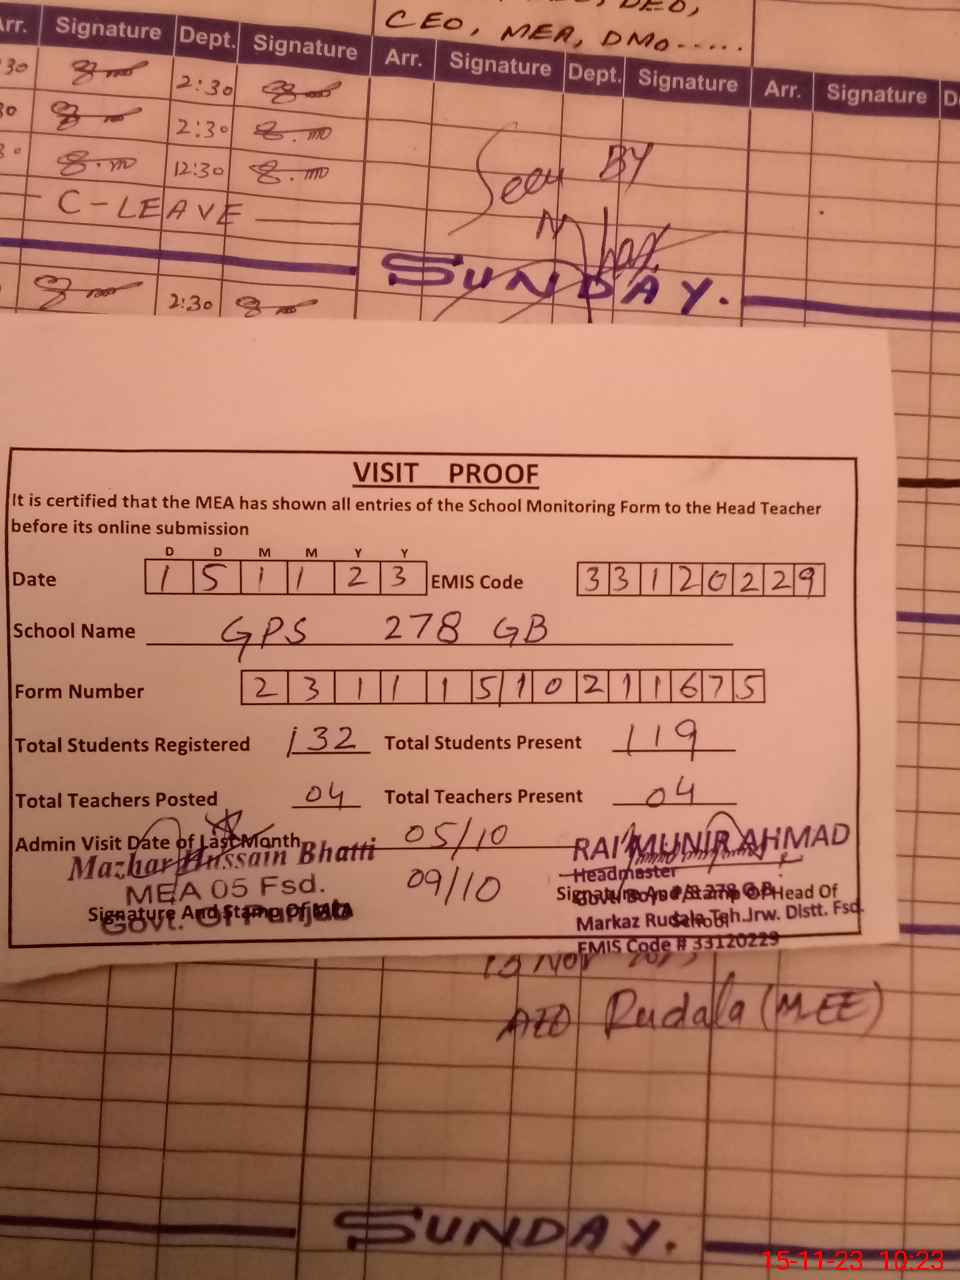 CEO, MEA, DMO.....
Arr. Signature Dept. Signature Arr. Signature Dept. Signature Arr. Signature
30 2:30
30 2:30
30 12:30
C-LEAVE
Seen BY
SUNDAY.
2:30
VISIT PROOF
It is certified that the MEA has shown all entries of the School Monitoring Form to the Head Teacher
before its online submission
D D M M Y Y
Date 1 5 1 1 2 3 EMIS Code 3 3 1 2 0 2 2 9
School Name GPS 278 GB
Form Number 2 3 1 1 1 5 1 0 2 1 1 6 7 5
Total Students Registered 132 Total Students Present 119
Total Teachers Posted 04 Total Teachers Present 04
Admin Visit Date of Last Month 05/10
09/10
Mazhar Hussain Bhatti
MEA 05 Fsd.
Govt. Of Punjab
Signature And Stamp Of MEA
RAI MUNIR AHMAD
Headmaster
Govt. Boys P/S 278 G.B.
Signature And Stamp Of Head Of
School
Markaz Rudala Teh.Jrw. Distt. Fsd.
EMIS Code # 33120229
AEO Rudala (MEE)
SUNDAY.
15-11-23 10:23